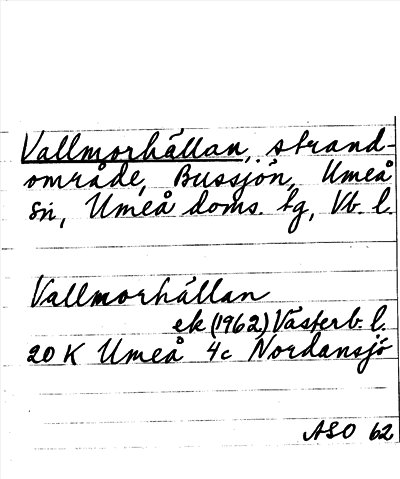 Vallmorhällan, strand-
område, Bussjön, Umeå
sn, Umeå doms. tg, Vb. l.
Vallmorhällan
ek (1962) Västerb. l.
20 K Umeå 4c Nordansjö
ASO 62